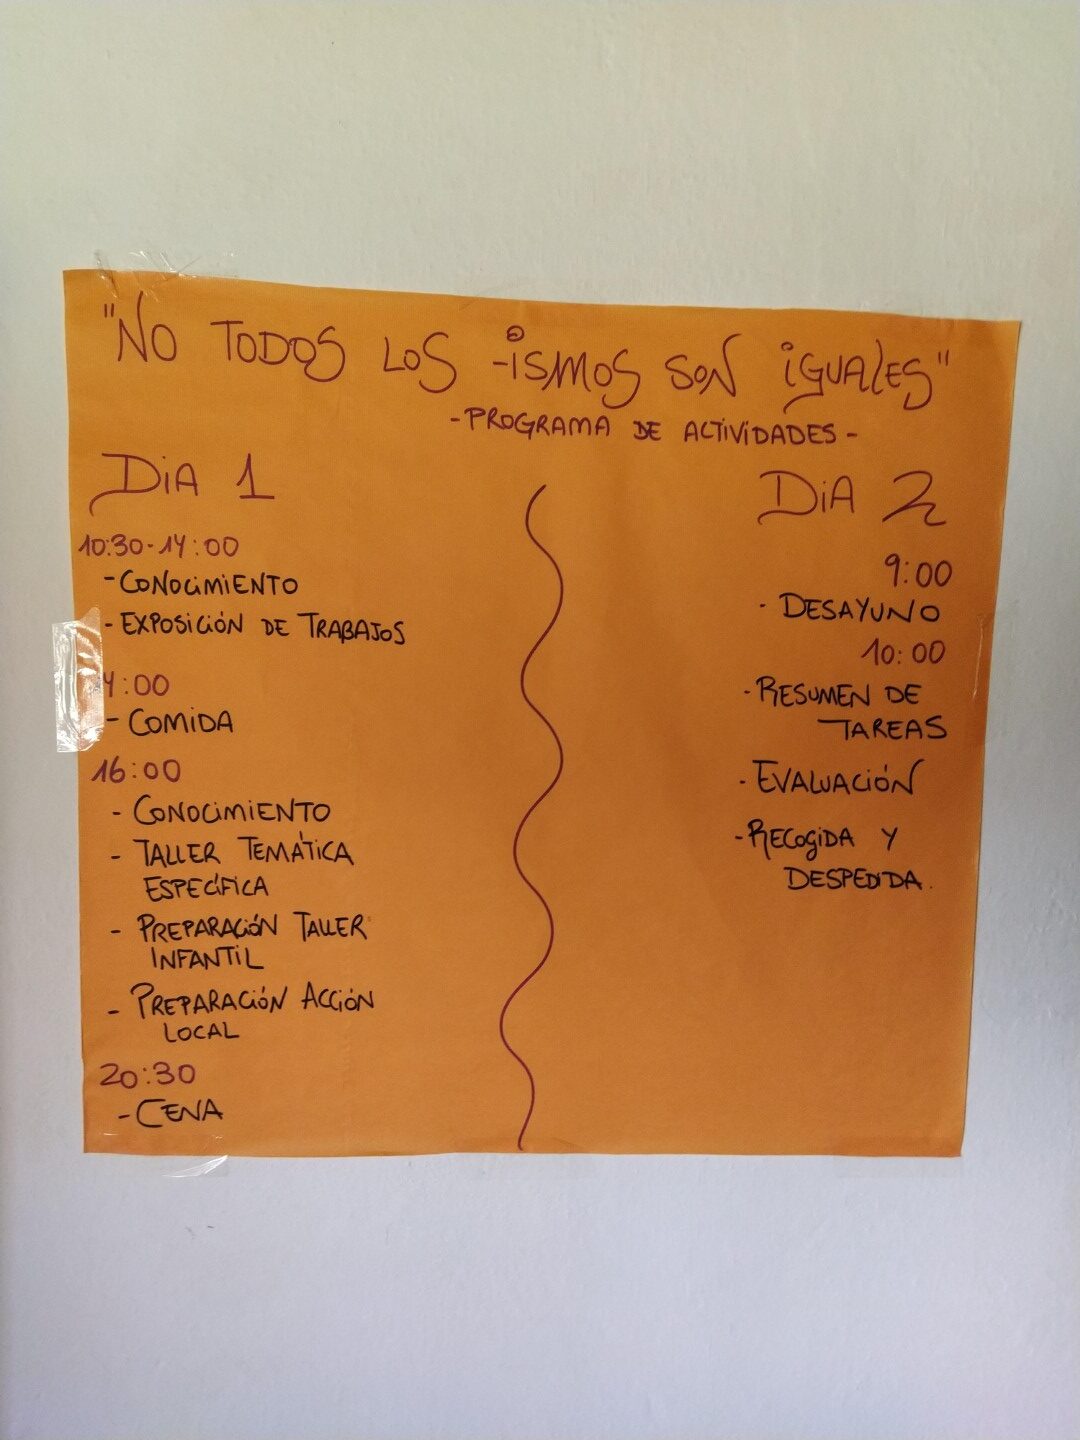 "NO TODOS LOS -ISMOS SON IGUALES"
-PROGRAMA DE ACTIVIDADES-
DIA 1
10:30-14:00
-CONOCIMIENTO
-EXPOSICIÓN DE TRABAJOS
14:00
-COMIDA
16:00
- CONOCIMIENTO
- TALLER TEMÁTICA
ESPECÍFICA
- PREPARACIÓN TALLER
INFANTIL
- PREPARACIÓN ACCIÓN
LOCAL
20:30
-CENA
DIA 2
9:00
- DESAYUNO
10:00
-RESUMEN DE
TAREAS
-EVALUACIÓN
-RECOGIDA Y
DESPEDIDA.